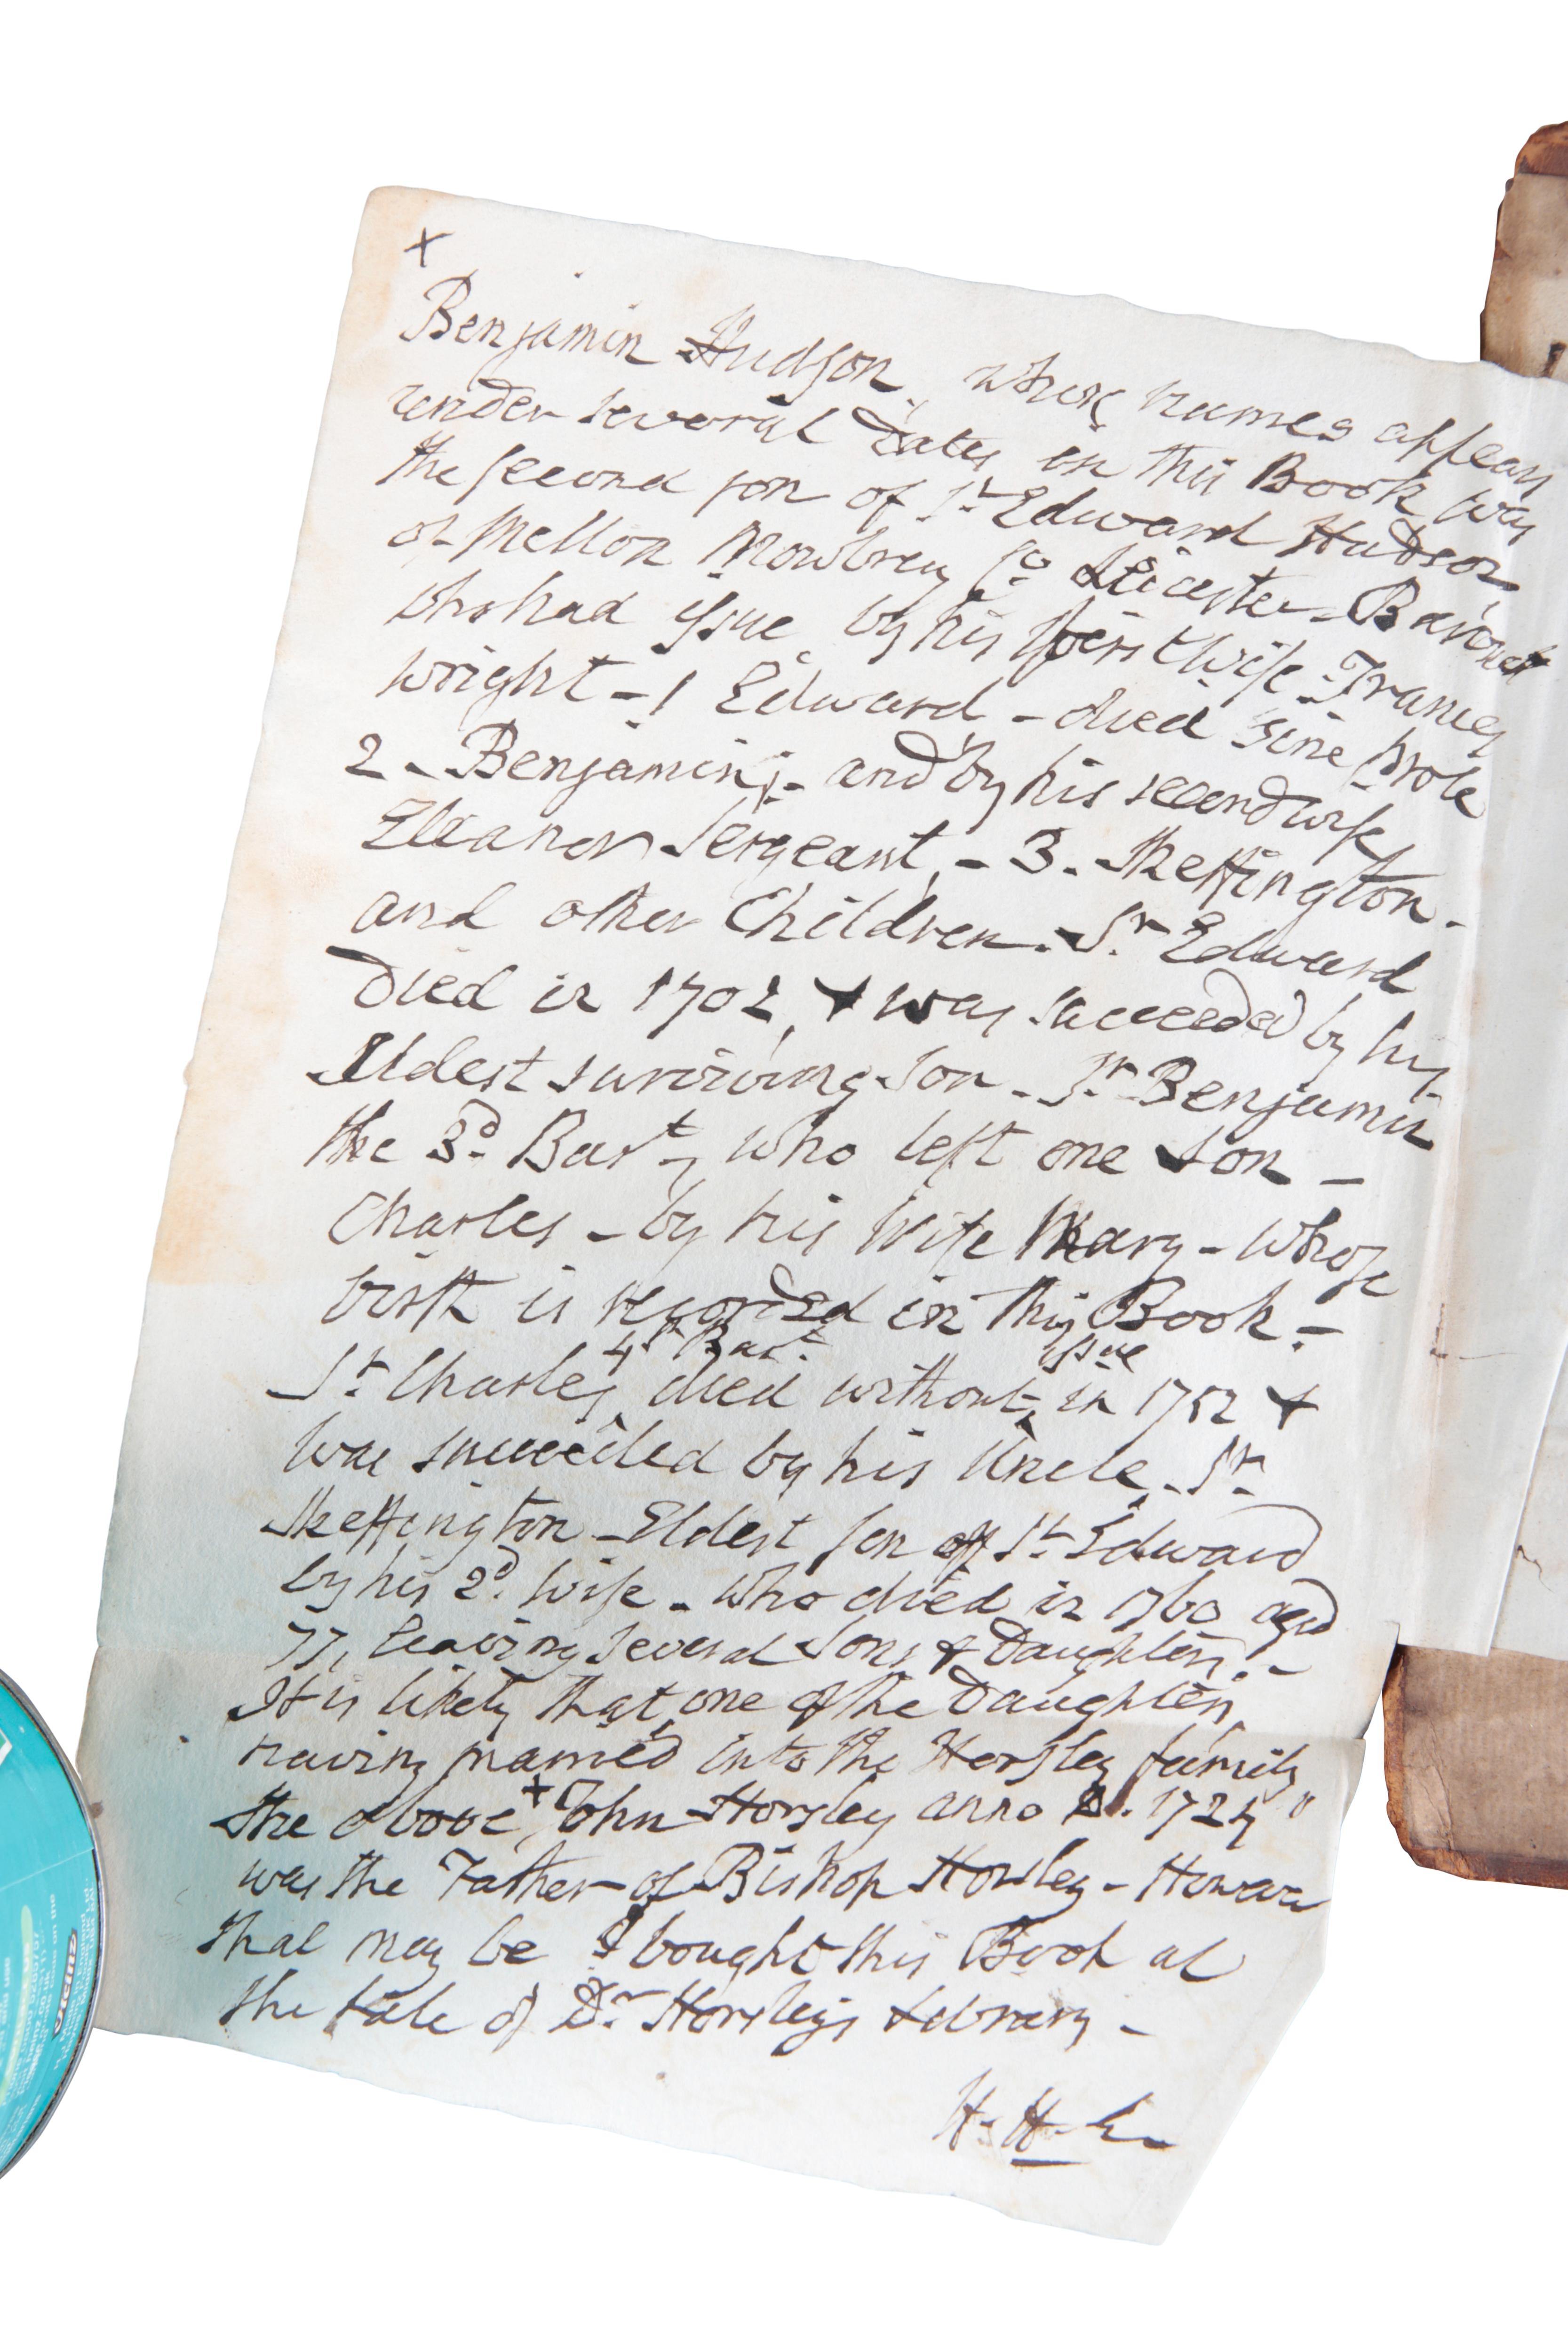 +
Benjamin Hudson, whose names appears
under several Dates in this Book was
the second son of Sr. Edward Hudson
of Melton Mowbray Co. Leicester - Baronet
who had issue, by his first Wife Frances
Wright - 1 Edward - died sine prole
2 - Benjamin; - and by his second wife,
Eleanor Sergeant, - 3. - Skeffington -
and other Children. - Sr. Edward
Died in 1702, & was succeeded by his
Eldest surviving Son - Sr. Benjamin
the 3d. Bart, who left one Son -
Charles - by his Wife Mary - whose
birth is recorded in this Book -
4th Bart. issue
Sr. Charles, died without, in 1752 &
was succeeded by his Uncle, Sr.
Skeffington - Eldest son of Sr. Edward
by his 2d. Wife - who died in 1760 aged
77, leaving several Sons & Daughters. -
It is likely that one of the Daughters
having married into the Horsley family
the above + "John Horsley anno D. 1724"
was the Father of Bishop Horsley - However
that may be I bought this Book at
the sale of Dr. Horsley's Library -
H. H.